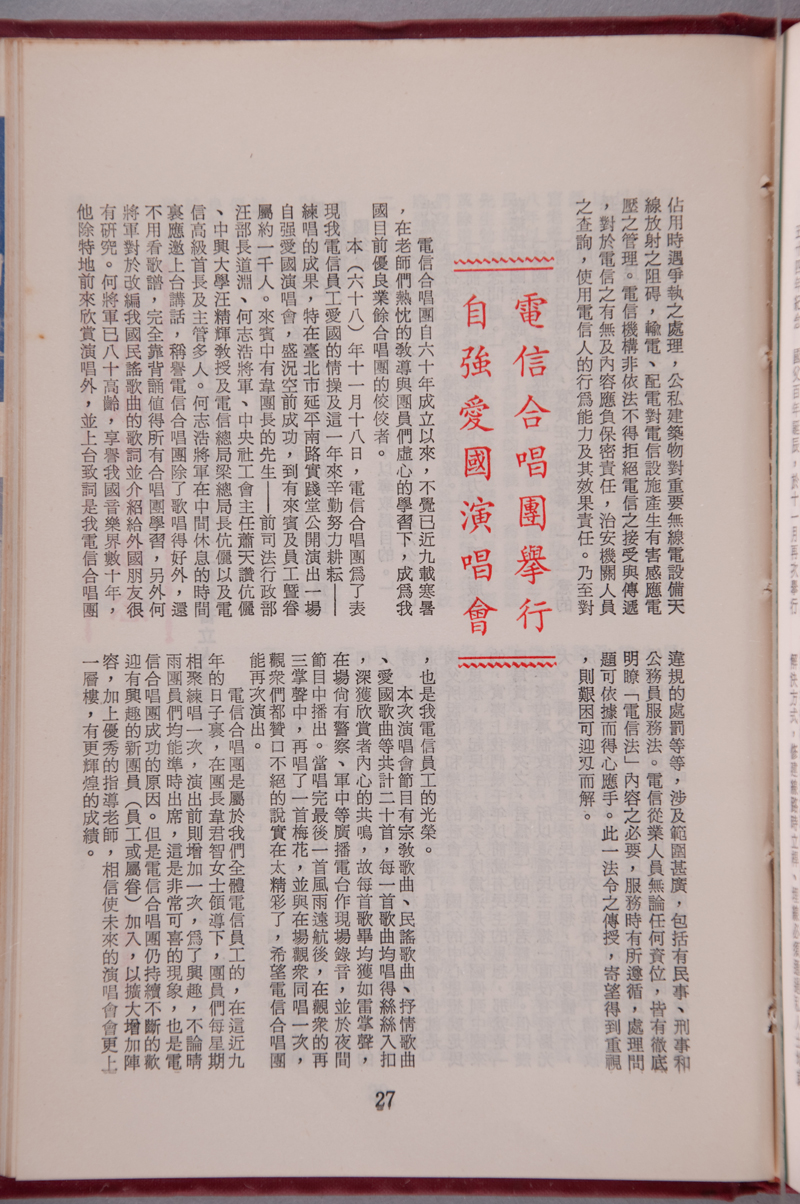 佔用時遇爭執之處理，公私建築物對重要無線電設備天
線放射之阻碍，輸電、配電對電信設施產生有害感應電
壓之管理。電信機構非依法不得拒絕電信之接受與傳遞
，對於電信之有無及內容應負保密責任，治安機關人員
之查詢，使用電信人的行為能力及其效果責任。乃至對
違規的處罰等等，涉及範圍甚廣，包括有民事、刑事和
公務員服務法。電信從業人員無論任何資位，皆有徹底
明瞭「電信法」內容之必要，服務時有所遵循，處理問
題可依據而得心應手。此一法令之傳授，寄望得到重視
，則艱困可迎刃而解。
電信合唱團舉行
自強愛國演唱會
電信合唱團自六十年成立以來，不覺已近九載寒暑
，在老師們熱忱的敎導與團員們虛心的學習下，成爲我
國目前優良業餘合唱團的佼佼者。
本（六十八）年十一月十八日，電信合唱團爲了表
現我電信員工愛國的情操及這一年來辛勤努力耕耘——
練唱的成果，特在臺北市延平南路實踐堂公開演出一場
自强愛國演唱會，盛況空前成功，到有來賓及員工暨眷
屬約一千人。來賓中有韋團長的先生——前司法行政部
汪部長道淵、何志浩將軍、中央社工會主任蕭天讚伉儷
、中興大學汪精輝敎授及電信總局梁總局長伉儷以及電
信高級首長及主管多人。何志浩將軍在中間休息的時間
裏應邀上台講話，稱譽電信合唱團除了歌唱得好外，還
不用看歌譜，完全靠背誦值得所有合唱團學習，另外何
將軍對於改編我國民謠歌曲的歌詞並介紹給外國朋友很
有研究。何將軍已八十高齡，享譽我國音樂界數十年，
他除特地前來欣賞演唱外，並上台致詞是我電信合唱團
，也是我電信員工的光榮。
本次演唱會節目有宗敎歌曲、民謠歌曲、抒情歌曲
、愛國歌曲等共計二十首，每一首歌曲均唱得絲絲入扣
，深獲欣賞者內心的共鳴，故每首歌畢均獲如雷掌聲，
在場尙有警察、軍中等廣播電台作現場錄音，並於夜間
節目中播出。當唱完最後一首風雨遠航後，在觀衆的再
三掌聲中，再唱了一首梅花，並與在場觀衆同唱一次，
觀衆們都贊口不絕的說實在太精彩了，希望電信合唱團
能再次演出。
電信合唱團是屬於我們全體電信員工的，在這近九
年的日子裏，在團長韋君智女士領導下，團員們每星期
相聚練唱一次，演出前則增加一次，爲了興趣，不論晴
雨團員們均能準時出席，這是非常可喜的現象，也是電
信合唱團成功的原因。但是電信合唱團仍持續不斷的歡
迎有興趣的新團員（員工或屬眷）加入，以擴大增加陣
容，加上優秀的指導老師，相信使未來的演唱會會更上
一層樓，有更輝煌的成績。
27